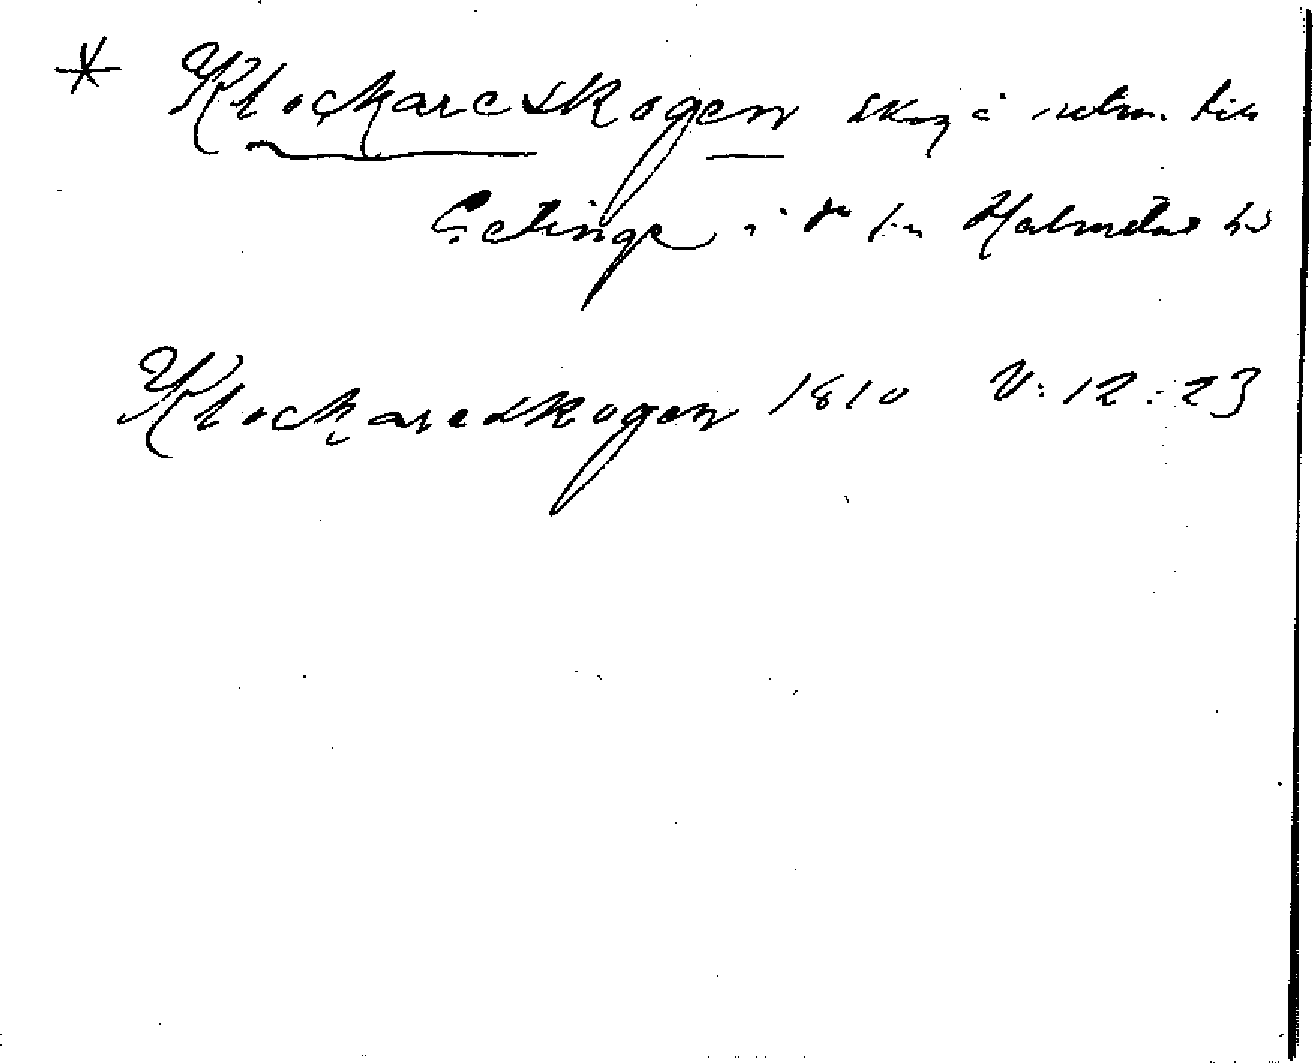 * Klockareskogen skog å utm. till
Getinge i sn Halmstad hd
Klockareskogen 1810 V:12:23